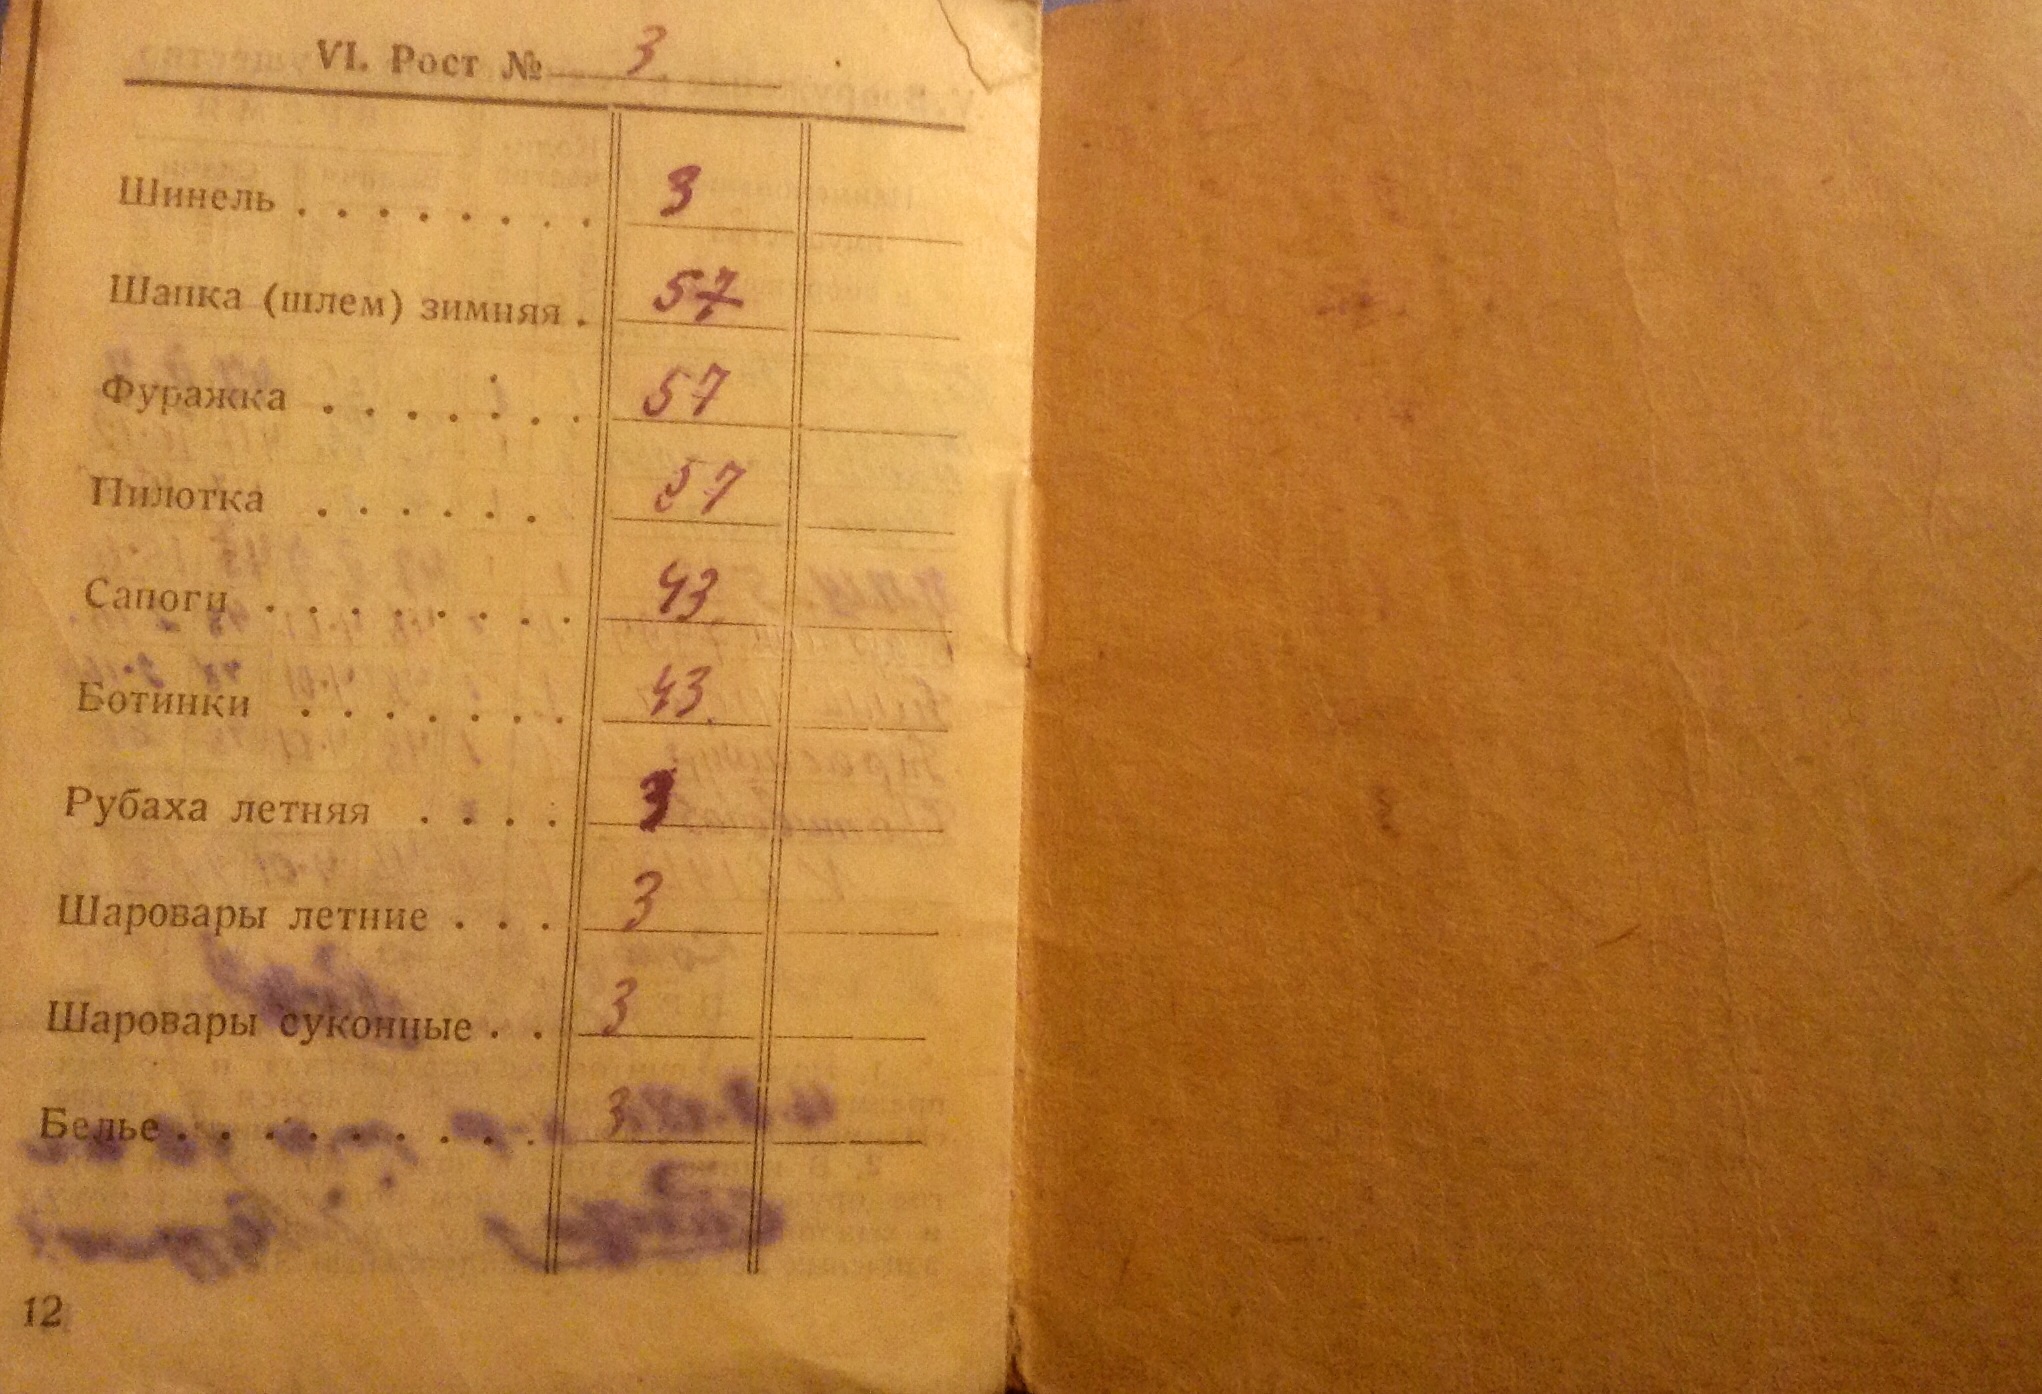 VI. Рост № 3
Шинель . . . . . . . . 3
Шапка (шлем) зимняя . 57
Фуражка . . . . . . . 57
Пилотка . . . . . . 57
Сапоги . . . . . . . . 43
Ботинки . . . . . . . 43.
Рубаха летняя . . . . 3
Шаровары летние . . . 3
Шаровары суконные . . 3
Белье . . . . . . . . . 3
12